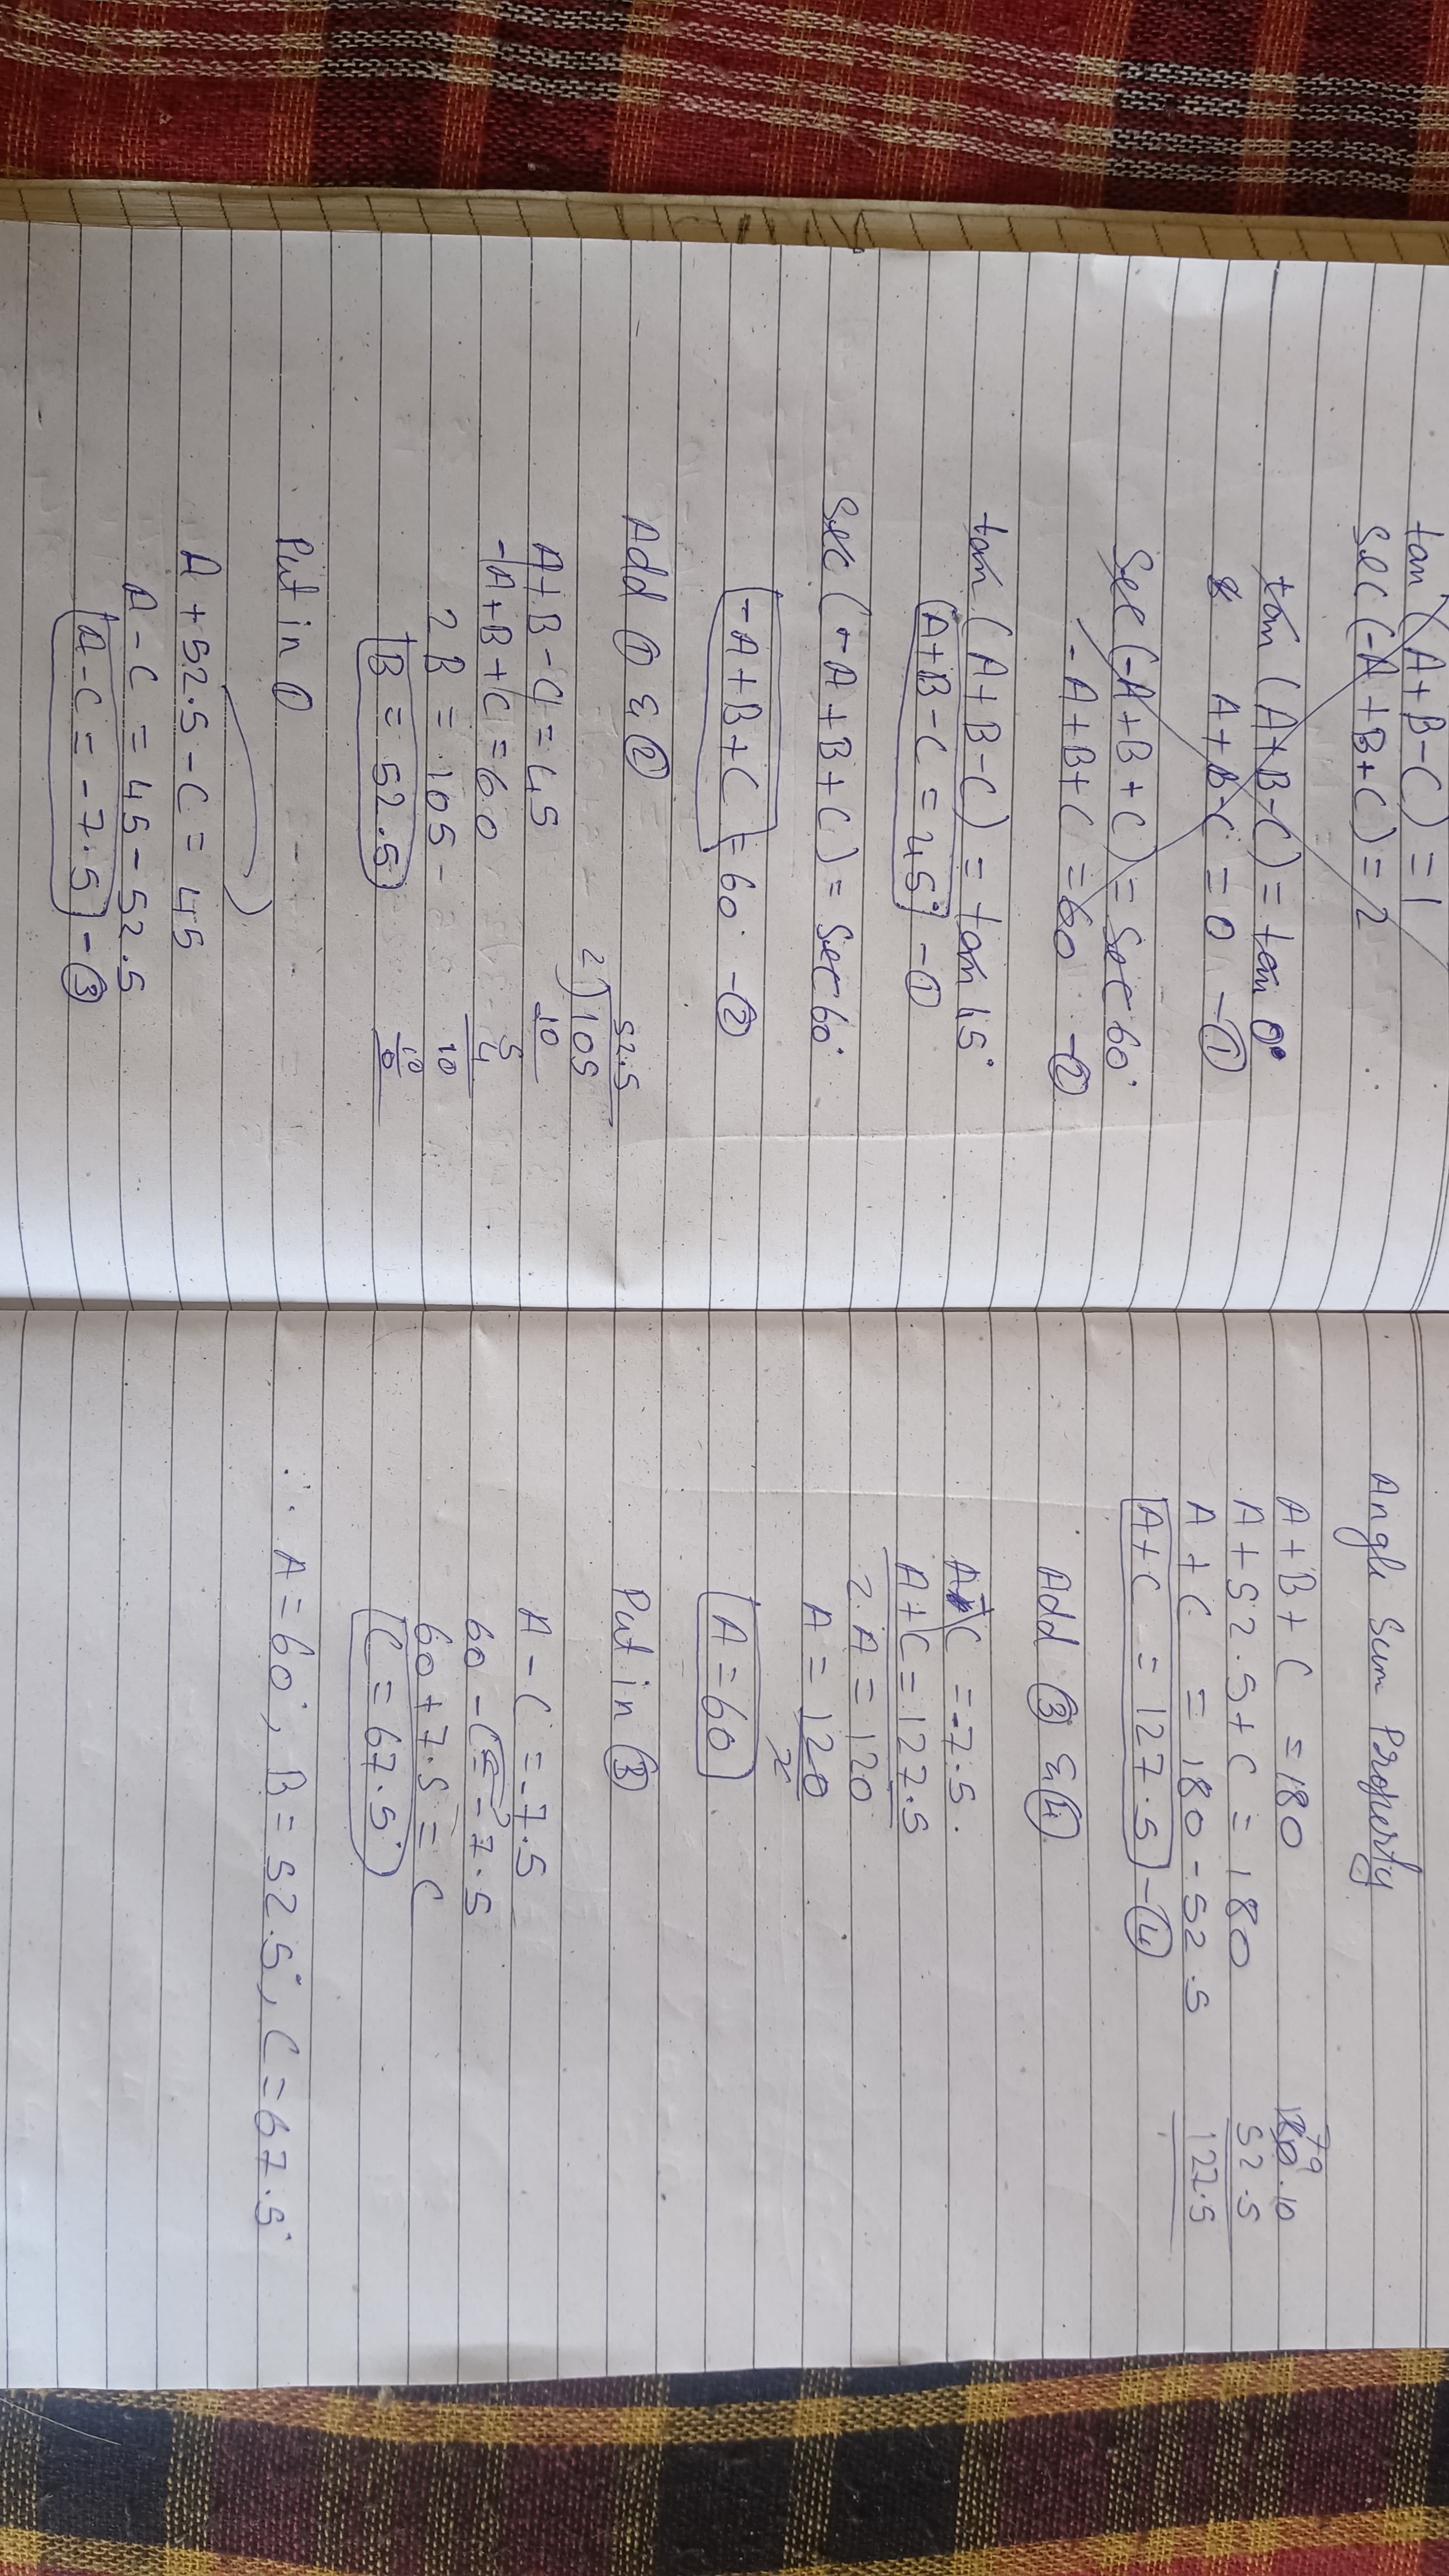 tan (A+B-C) = 1
sec (-A+B+C) = 2
tan (A+B-C) = tan 0°
A+B-C = 0 -①
Sec (-A+B+C) = Sec 60°
-A+B+C = 60 -②
tan (A+B-C) = tan 45°
A+B-C = 45° -①
Sec (-A+B+C) = Sec 60°
-A+B+C = 60° -②
Add ① & ②
52.5
2)105
10
5
4
10
10
0
A+B-C = 45
-A+B+C = 60
2B = 105
B = 52.5
Put in ①
A + 52.5 - C = 45
A - C = 45 - 52.5
A-C = -7.5 -③
Angle Sum Property
A+B+C = 180
A+52.5+C = 180
A+C = 180-52.5
A+C = 127.5 -④
52.5
127.5
Add ③ & ④
A-C = -7.5.
A+C = 127.5
2A = 120
A = 120
2
A = 60
Put in ③
A - C = -7.5
60 - C = -7.5
60+7.5 = C
C = 67.5°
∴ A = 60°, B = 52.5°, C = 67.5°